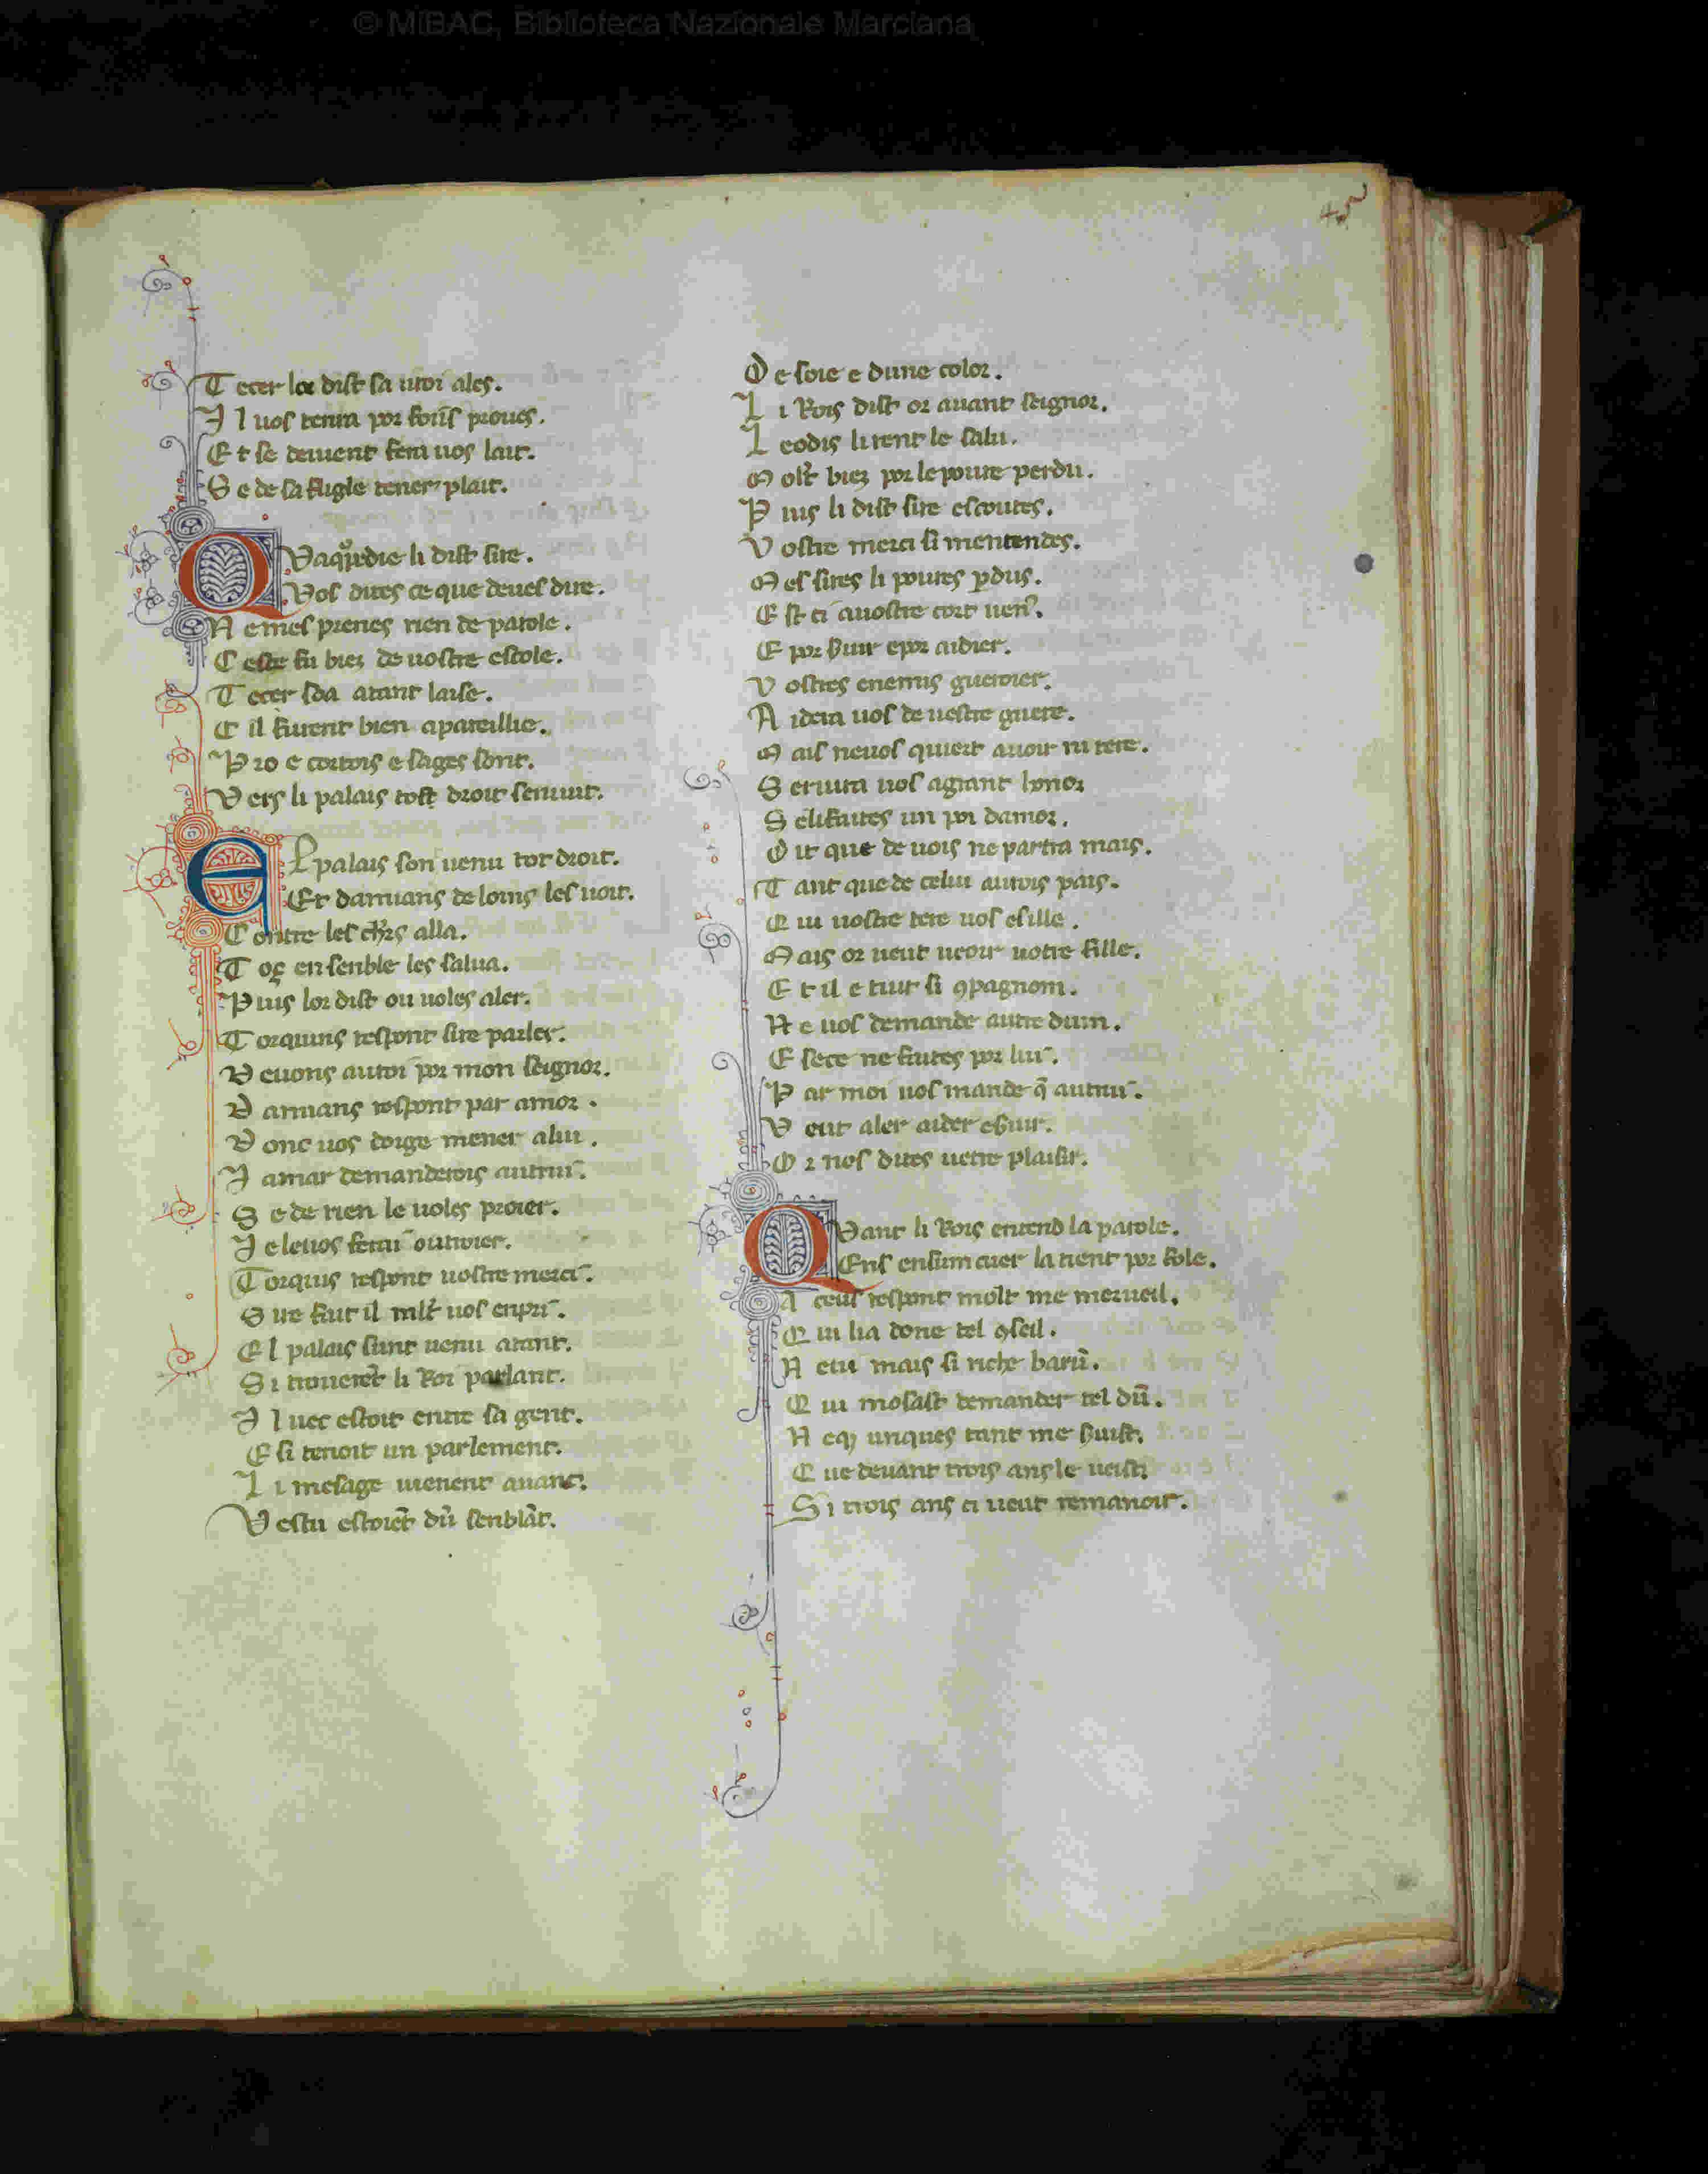 © MiBAC, Biblioteca Nazionale Marciana
45
T ecer loe dist sa uroi ales.
I l uos tenra por forꝯ proues.
E t se deuient fera uos lait.
S e de sa fugle tener plait.
Q Vaqͥ die li dist sire.
Vos dites ce que deues dire.
N emes prenes rien de parole.
C este fu biez de uostre escole.
T ecer soa atant laise.
C il furent bien apareillie.
P ro e cortois e sages sont.
V ers li palais tost droit seruunt.
E l palais son uenu tot droit.
Et daruans de loins les uoit.
C ontre les chͬs alla.
T oz ensenble les salua.
P uis lor dist ou uoles aler.
T orquins respont sire parler.
D euons au roi por mon seignor.
D aruans respont par amor.
D onc uos doige mener alui.
J amar demanderois autrui.
S e de rien le uoles proier.
J e leuos ferai outroier.
T orquis respont uostre merci.
Q ue fait il mlt uos enpri.
E l palais sunt uenu atant.
S i trouerēt li Roi parlant.
I l uec estoit entre sa gent.
E si tenoit un parlement.
L i mesage uienent auant.
V estu estoiēt dū senblāt.
D e soie e dune color.
L i Rois dist or auant seignor.
L eodis li rent le salu.
M olt biez por le poure perdu.
P uis li dist sire escoutes.
V ostre merci si mentendes.
M es sires li poures ꝑdus.
E st ci auostre cort uenꝰ.
E por seruir epor aidier.
V ostres enemis guerroier.
A idera uos de uestre guere.
M ais neuos quiert auoir ni tere.
S eruira uos agrant honor
S elifaites un poi damor.
D it que de uois ne partra mais.
T ant que de celui aurois pais.
Q ui uostre tere uos esille.
M ais or ueut ueoir uotre fille.
E t il e tuit si ꝯpagnom.
N e uos demande autre dum.
E sece ne faites por lui.
P ar moi uos mande q̄ autrui.
V eut aler aider eseruir.
O r nos dites uetre plaisir.
Q Vant li Rois entend la parole.
Ens ensum cuer la tient por fole.
A ceus respont molt me merueil.
Q ui lia done tel ꝯseil.
N etu mais si riche barū.
Q ui mosast demander tel dū.
N eqͥ unques tant me seruist.
Q ue deuant trois ans le ueist.
S i trois ans ci ueut remanoir.